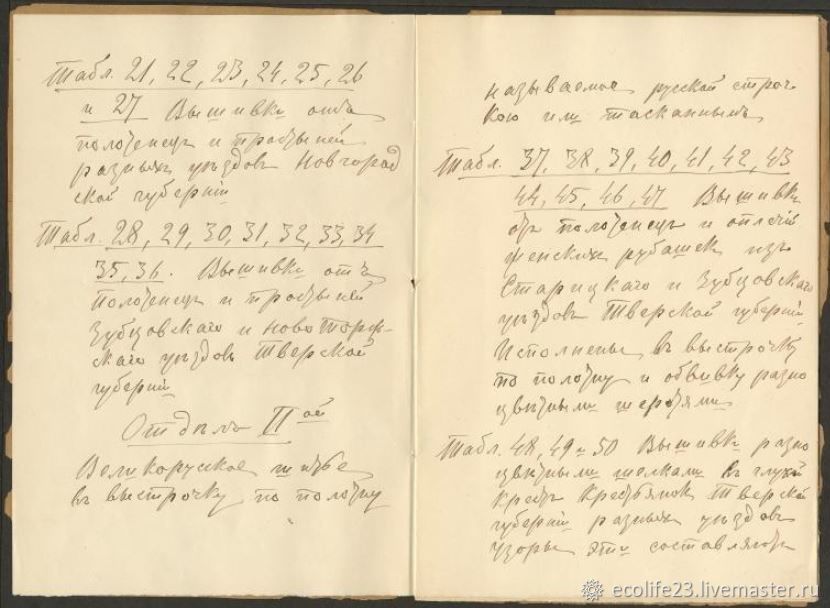 Табл. 21, 22, 23, 24, 25, 26
и 27 Вышивки отъ
полотенецъ и простыней
разныхъ уѣздовъ Новгород
ской губерніи
Табл. 28, 29, 30, 31, 32, 33, 34
35, 36. Вышивки отъ
полотенецъ и простыней
Зубцовскаго и Новоторж-
скаго уѣздовъ Тверской
губерніи
Отдѣлъ IIой
Великорусское шитье
въ выстрочку по полотну
называемое русской строч-
кою или тасканнымъ
Табл. 37, 38, 39, 40, 41, 42, 43
44, 45, 46, 47 Вышивки
отъ полотенецъ и оплечій
женскихъ рубашек изъ
Старицкаго и Зубцовскаго
уѣздовъ Тверской губерніи
Исполнены въ выстрочку
по полотну и обвивку разно
цвѣтными шерстями
Табл. 48, 49 и 50 Вышивки разно
цвѣтными шелками въ глухой
крестъ крестьянок Тверской
губерніи разныхъ уѣздовъ
Узоры эти составляютъ
ecolife23.livemaster.ru